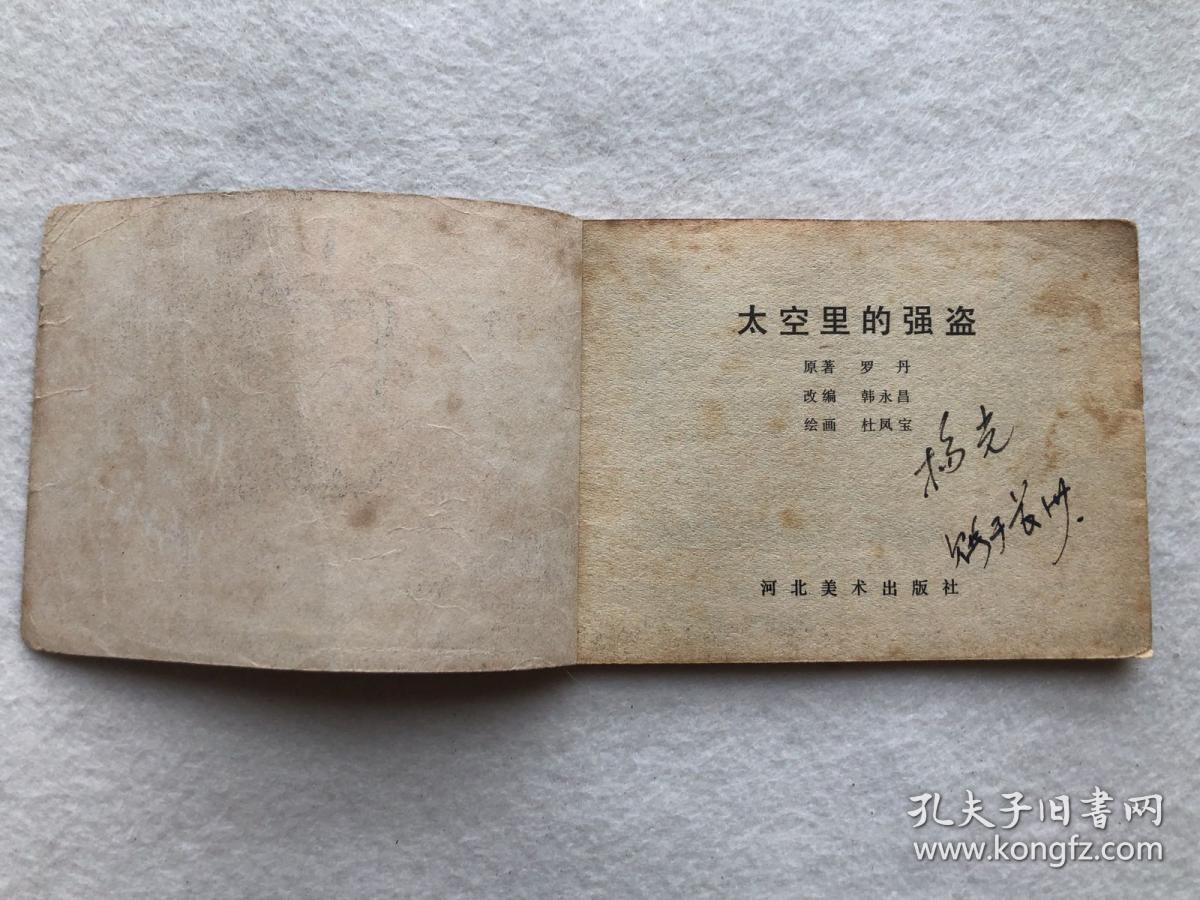 太空里的强盗
原著 罗丹
改编 韩永昌
绘画 杜凤宝
杨克
河北美术出版社
孔夫子旧书网
www.kongfz.com